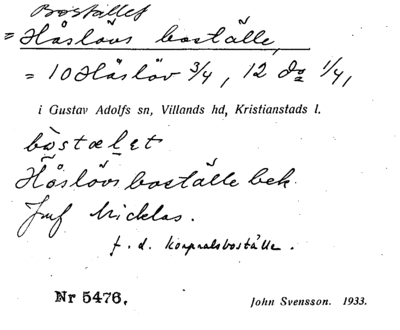 Bostället
= Håslövs boställe,
= 10 Håslöv 3/4, 12 do 1/4,
i Gustav Adolfs sn, Villands hd, Kristianstads l.
bostælet
Håslövs boställe bek.
Jmf Nicklas.
f. d. korpralsboställe.
Nr 5476.
John Svensson. 1933.